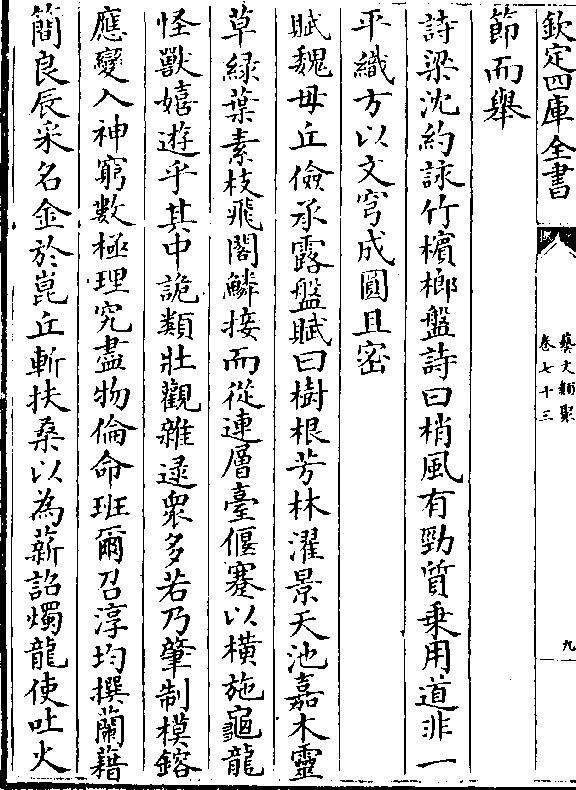 欽定四庫全書
藝文類聚
卷七十三
九
節而舉
詩梁沈約詠竹檳榔盤詩曰梢風有勁質乗用道非一
平織方以文穹成圓且密
賦魏毋丘儉承露盤賦曰樹根芳林濯景天池嘉木靈
草緑葉素枝飛閣鱗接而從連層臺偃蹇以橫施龜龍
怪獸嬉遊乎其中詭類壯觀雜逯衆多若乃肇制模鎔
應變入神窮數極理究盡物倫命班爾召淳均撰蘭藉
簡良辰采名金於崑丘斬扶桑以為薪詔燭龍使吐火